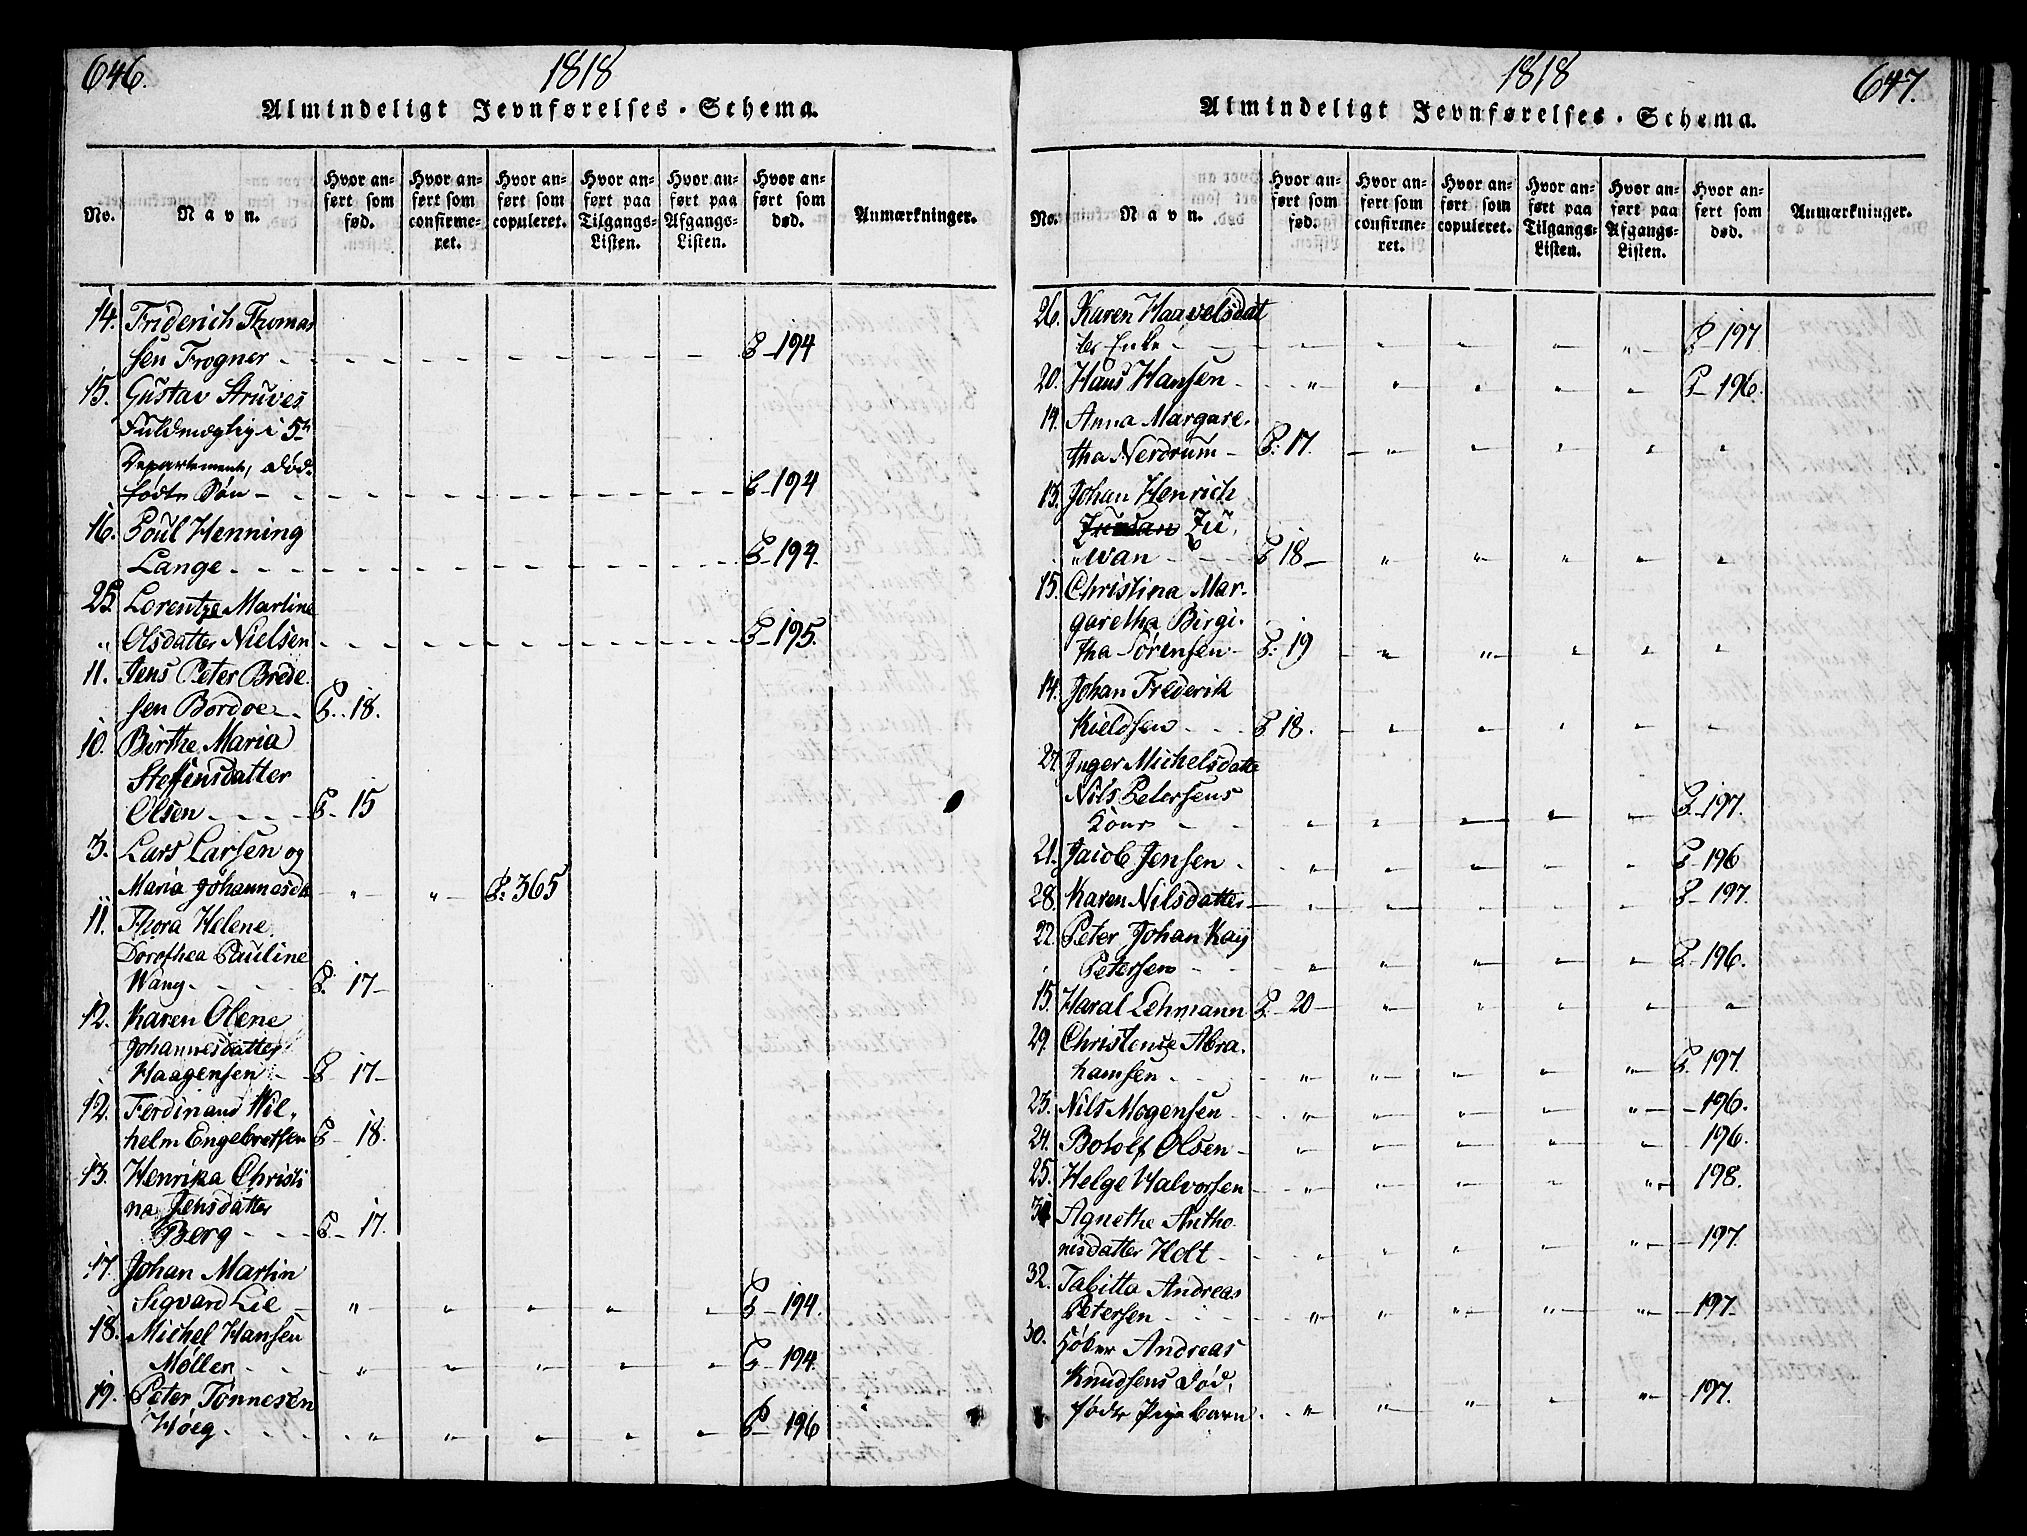 646.
1818
Almindeligt Jevnførelses-Schema.
No.
Navn.
Hvor anført som fød.
Hvor anført som confirmeret.
Hvor anført som copuleret.
Hvor anført paa Tilgangs-Listen.
Hvor anført paa Afgangs-Listen.
Hvor anført som død.
Anmærkninger.
14. Friderich Thomas
sen Frogner P-194
15. Gustav Struves
Fuldmægtig i 5te
Departement, død-
fødte Søn P-194
16. Poul Henning
Lange P-194.
25. Lorentze Martine
Olsdatter Nielsen P-195.
11. Jens Peter Brede
sen Bordoe P. 18.
10. Birthe Maria
Steffensdatter
Olsen P. 15
3. Lars Larsen og
Maria Johannesda P. 365
11. Thora Helene
Dorothea Pauline
Wang P. 17
12. Karen Olene
Johannesdatter
Haagensen P 17
12. Ferdinand Wil-
helm Engebretsen P 18.
13. Henrika Christi
na Jensdatter
Berg P. 17.
17. Johan Martin
Sigvard Lie P-194.
18. Michel Hansen
Møller P-194.
19. Peter Tønnesen
Høeg P-196
1818
647.
Almindeligt Jevnførelses-Schema.
No.
Navn.
Hvor anført som fød.
Hvor anført som confirmeret.
Hvor anført som copuleret.
Hvor anført paa Tilgangs-Listen.
Hvor anført paa Afgangs-Listen.
Hvor anført som død.
Anmærkninger.
26. Karen Haavelsdat
ter Enke P 197
20. Hans Hansen P-196.
14. Anna Margare-
tha Nerdrum P. 17.
13. Johan Henrich
Zu-
wan P 18
15. Christina Mar-
garetha Birgi-
tha Sørensen P. 19
14. Johan Frederik
Kieldsen P 18.
27. Inger Michelsdatte
Nils Petersens
Kone P. 197.
21. Jacob Jensen P-196
28. Karen Nilsdatter P-197.
22. Peter Johan Kay
Petersen P. 196.
15. Haral Lehmann P. 20
29. Christense Abra-
hamsen P. 197.
23. Nils Mogensen 196.
24. Botolf Olsen 196.
25. Helge Halvorsen 198.
31 Agnethe Antho
nisdatter Holt 197.
32. Tabitta Andreas
Petersen 197.
30. Høker Andreas
Knudsens død-
fødte Pige barn 197.